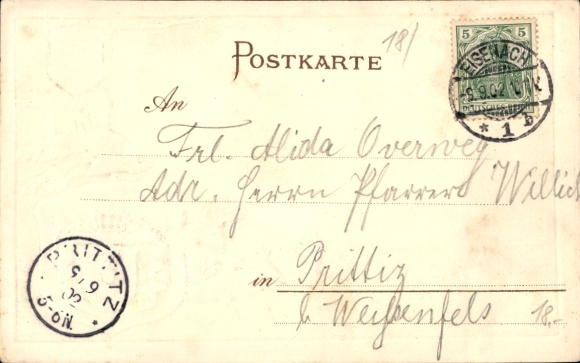 18/
POSTKARTE
5 5
EISENACH
-9.9.02
DEUTSCHES REICH
* 1 b
An
Frl. Alida Overweg
Adr. Herrn Pfarrer Willich
in Prittiz
b. Weißenfels
18.-
PRITTITZ
9/9
02
5-6N.
*